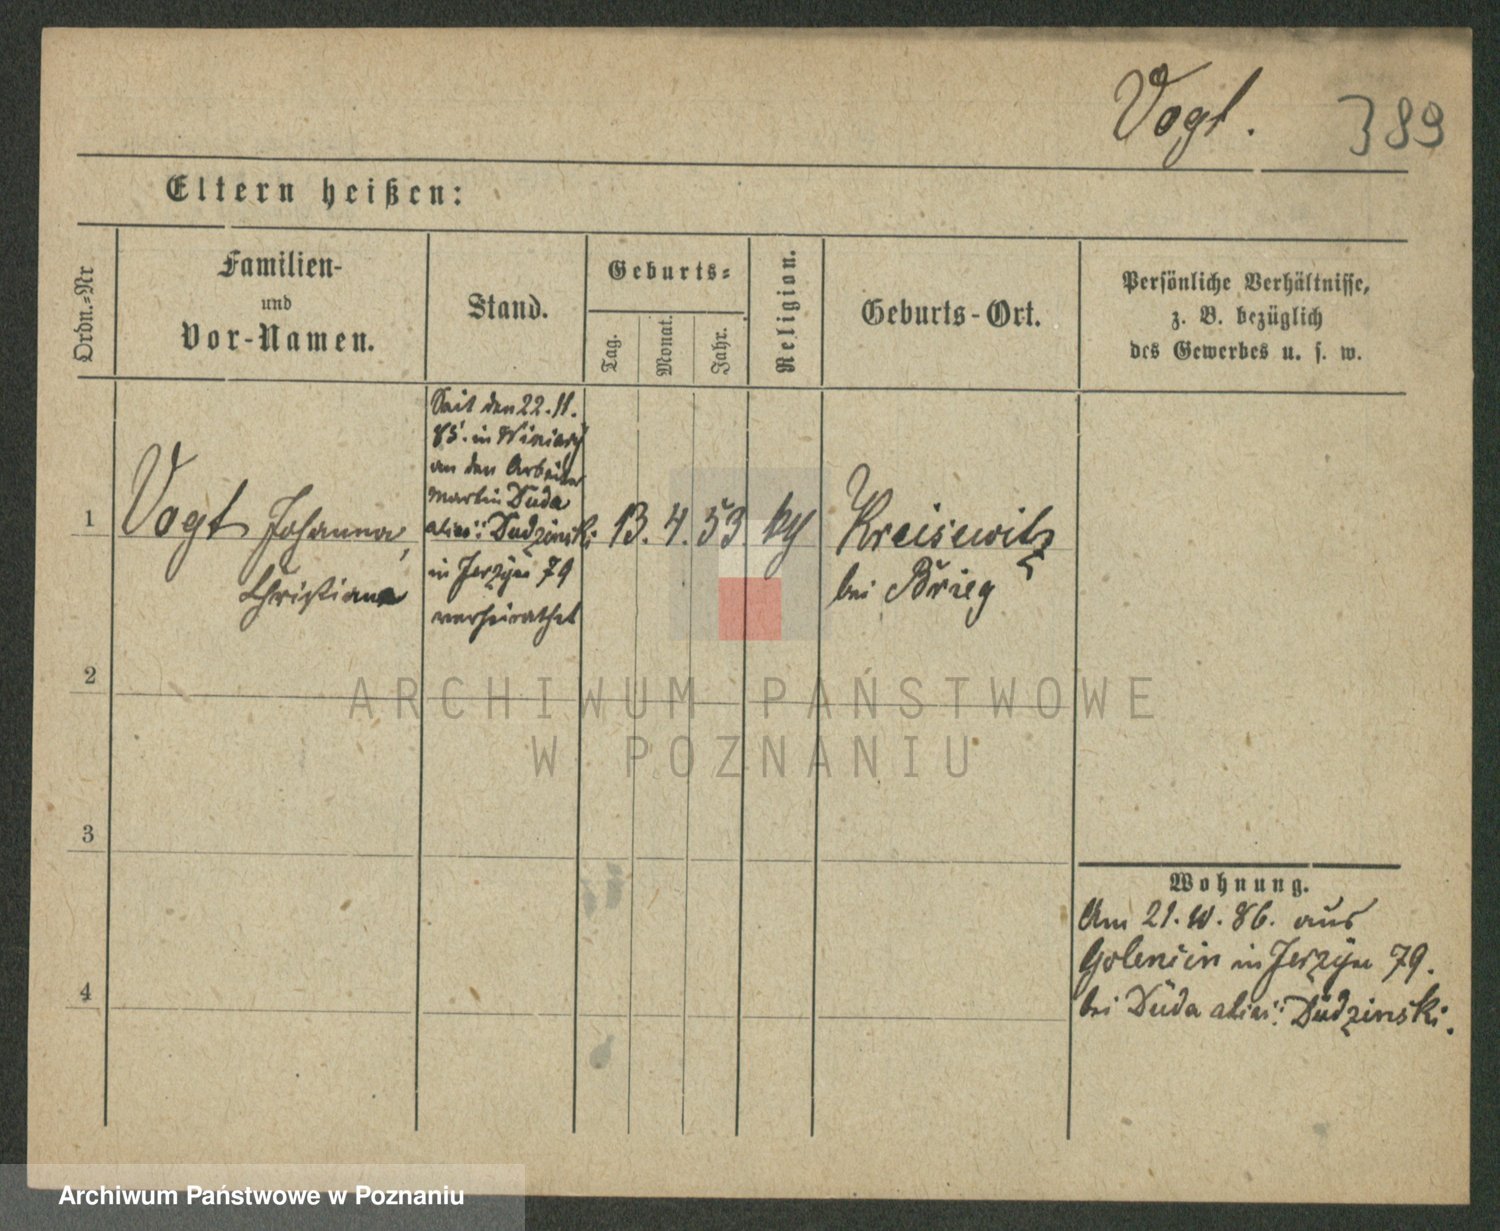 Vogt.
389
Eltern heißen:
Ordn.-Nr
Familien-
und
Vor-Namen.
Stand.
Geburts-
Tag.
Monat.
Jahr.
Religion.
Geburts-Ort.
Persönliche Verhältnisse,
z. B. bezüglich
des Gewerbes u. s. w.
1
Vogt Johanna,
Christiane
Seit den 22. 11.
85. in Winiary
an den Arbeiter
Martin Duda
alias: Dudzinski
in Jerzyce 79
verheirathet
13. 4. 53.
Kreisewitz
bei Brieg
2
3
4
Wohnung.
Am 21. 10. 86. aus
Golencin in Jerzyce 79.
bei Duda alias: Dudzinski.
ARCHIWUM PAŃSTWOWE
W POZNANIU
Archiwum Państwowe w Poznaniu